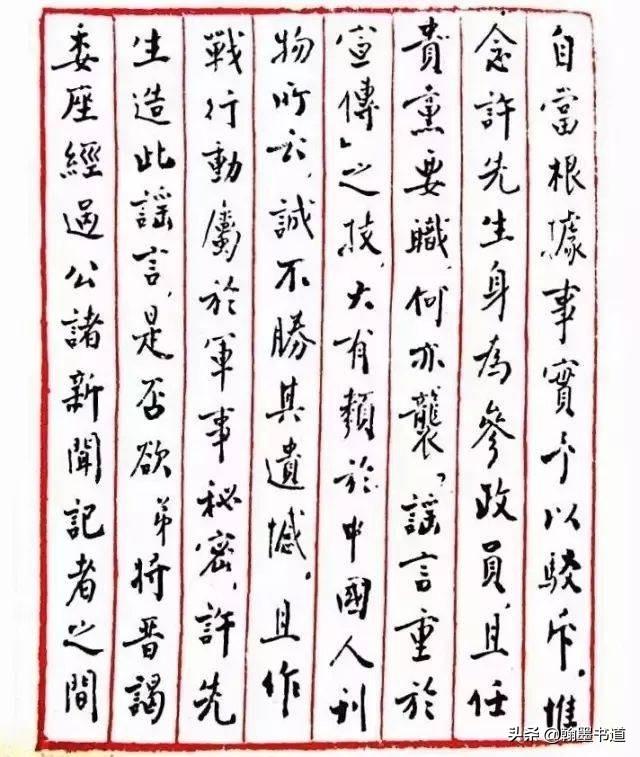 自當根據事實予以駁斥。惟
念許先生身為參政員、且任
貴黨要職、何亦襲「謠言重於
宣傳」之技、大有類於中國人刊
物所云、誠不勝其遺憾。且作
戰行動屬於軍事秘密、許先
生造此謠言、是否欲弟將晉謁
委座經過公諸新聞記者之間
头条@翰墨书道